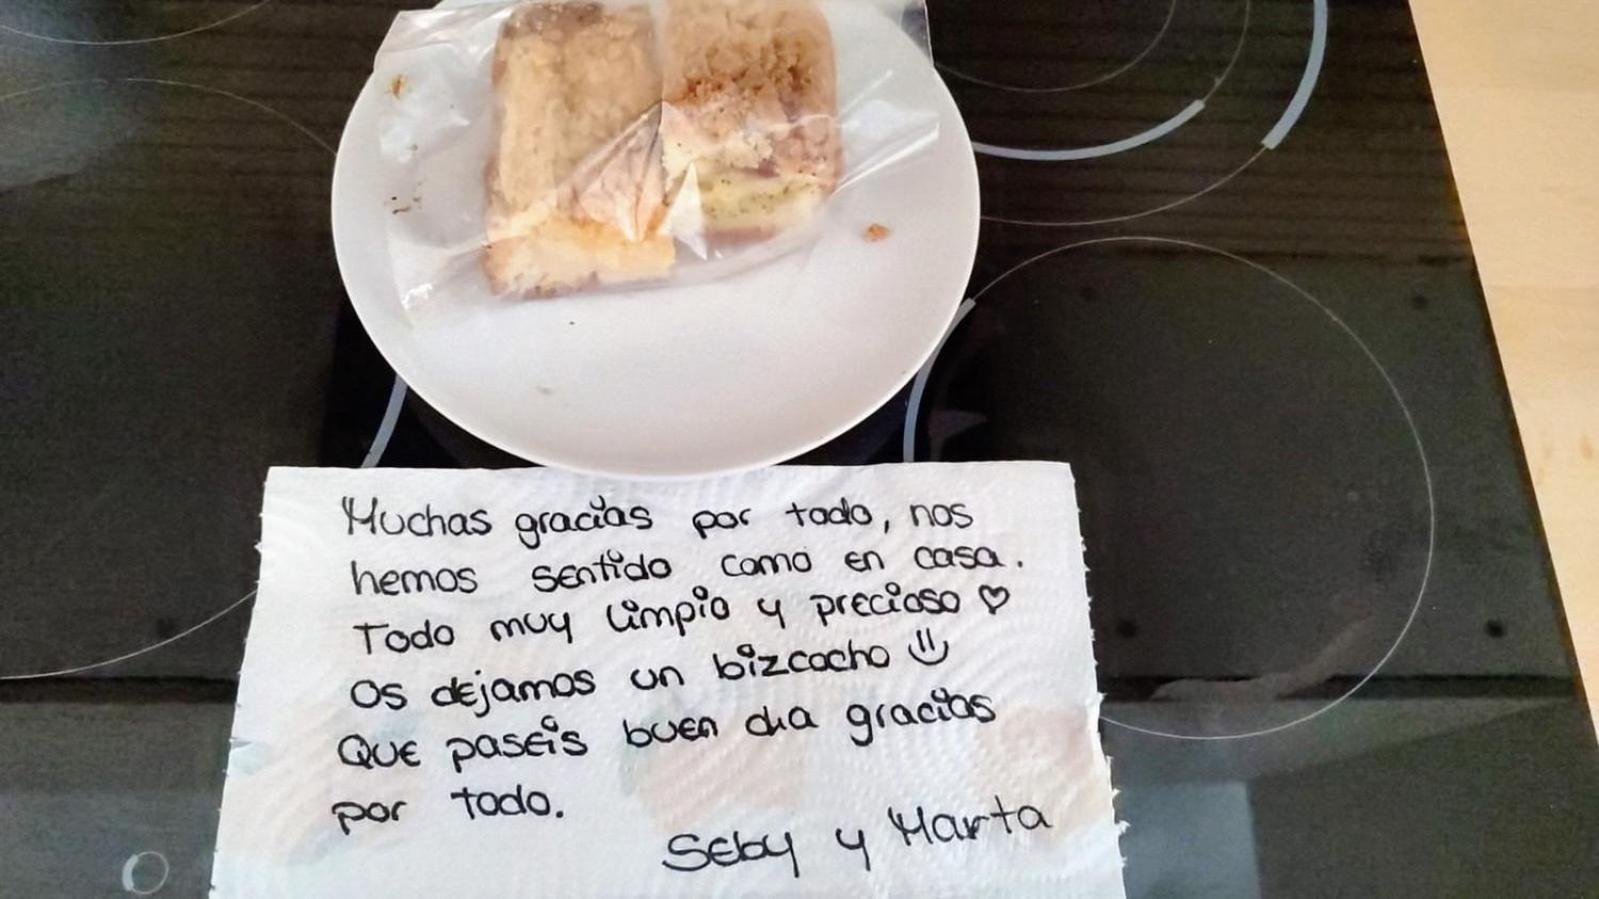 Muchas gracias por todo, nos
hemos sentido como en casa.
Todo muy limpio y precioso ♡
Os dejamos un bizcocho
Que paseis buen dia gracias
por todo.
Seby y Marta